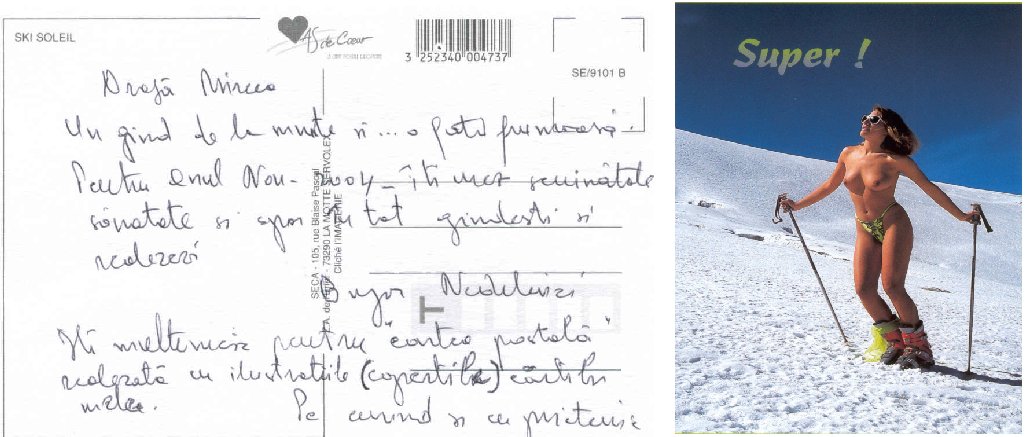 SKI SOLEIL
AS de Cœur
3 252340 004737
SE/9101 B
Dragă Mircea
Un gînd de la munte și ... o fată frumoasă.
Pentru Anul Nou - îți urez seninătate
sănătate și spor în tot gîndești și
realizezi
SECA - 105, rue Blaise Pascal
73290 LA MOTTE SERVOLEX
Cliché l'IMAGERIE
T
Îți mulțumesc pentru cartea poștală
realizată cu ilustrațiile (copertile) cărților
mele.
Pe curînd și cu prietenie
Super !